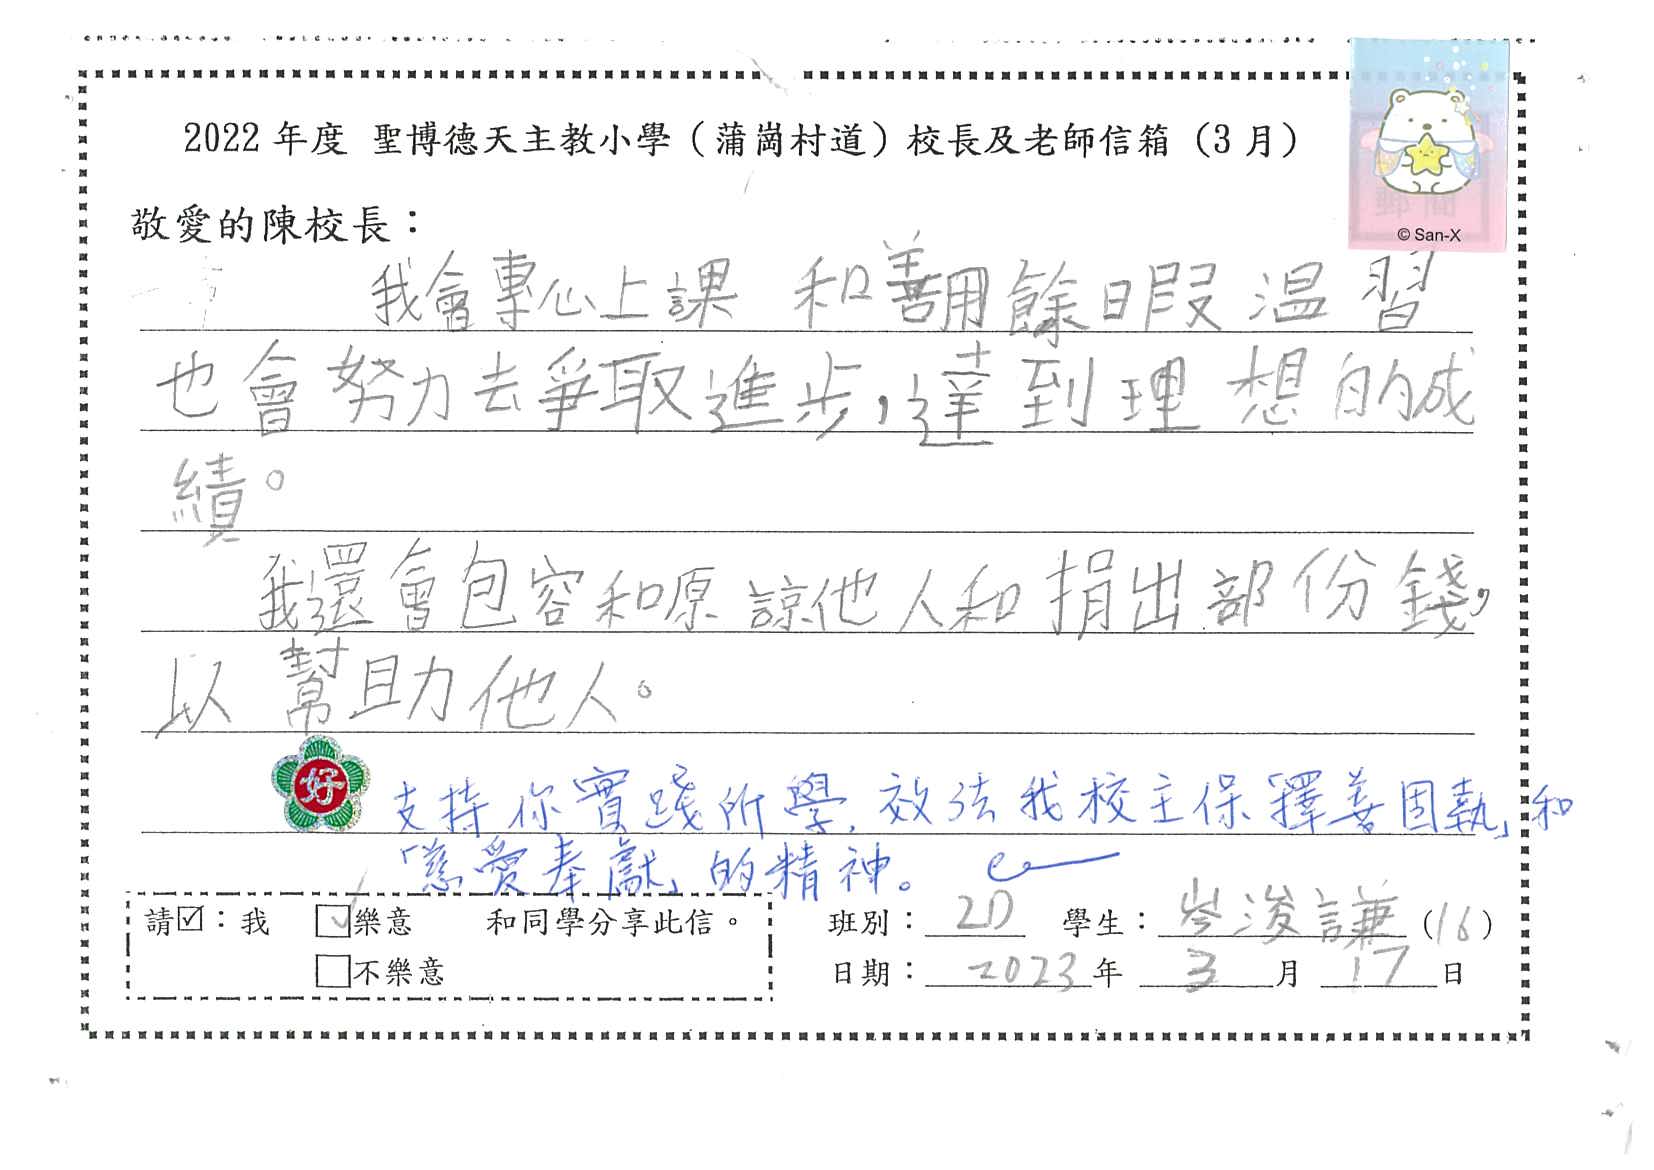 2022 年度 聖博德天主教小學（蒲崗村道）校長及老師信箱（3 月）
© San-X
敬愛的陳校長：
我會專心上課 和善用餘日暇温習
也會努力去爭取進步，達到理想的成
績。
我還會包容和原諒他人和捐出部份錢，
以幫助他人。
好
支持你實踐所學，效法我校主保「擇善固執」和
「慈愛奉獻」的精神。
請☑：我 ☑樂意 和同學分享此信。
□不樂意
班別：2D 學生：岑浚謙（16）
日期：2023年 3月 17日